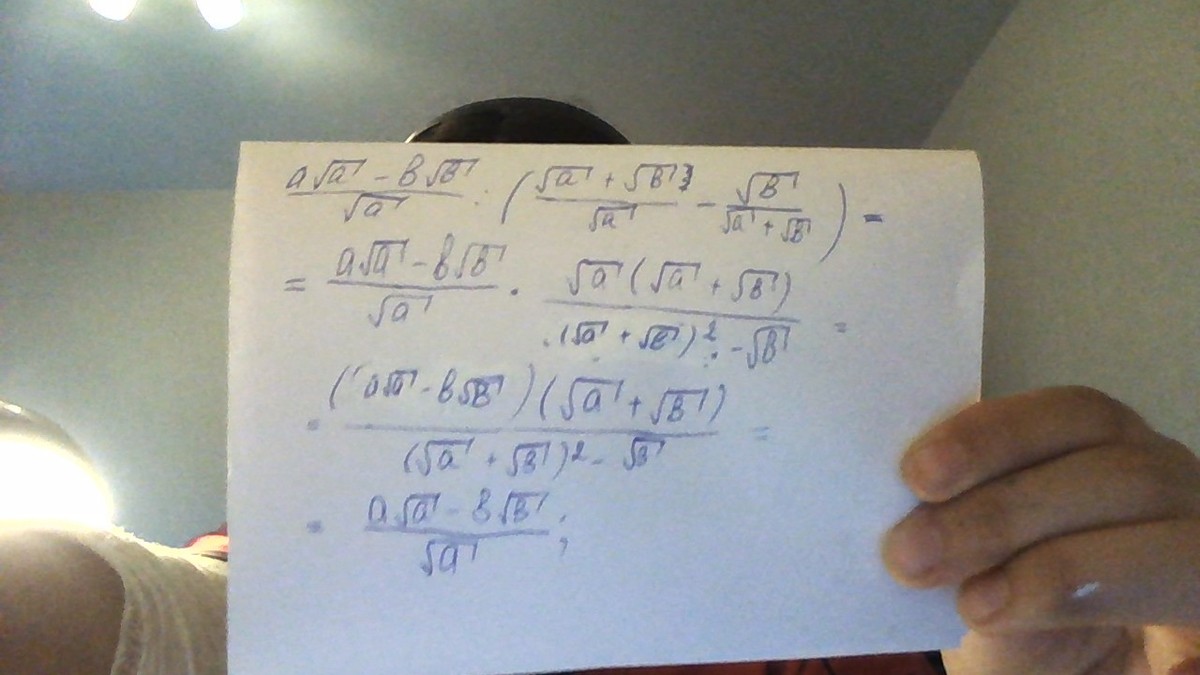 (a√a - b√b)/√a : ((√a + √b)/√a - √b/(√a + √b)) =
= (a√a - b√b)/√a · √a(√a + √b)/((√a + √b)² - √b) =
= (a√a - b√b)(√a + √b)/((√a + √b)² - √b) =
= (a√a - b√b)/√a ;